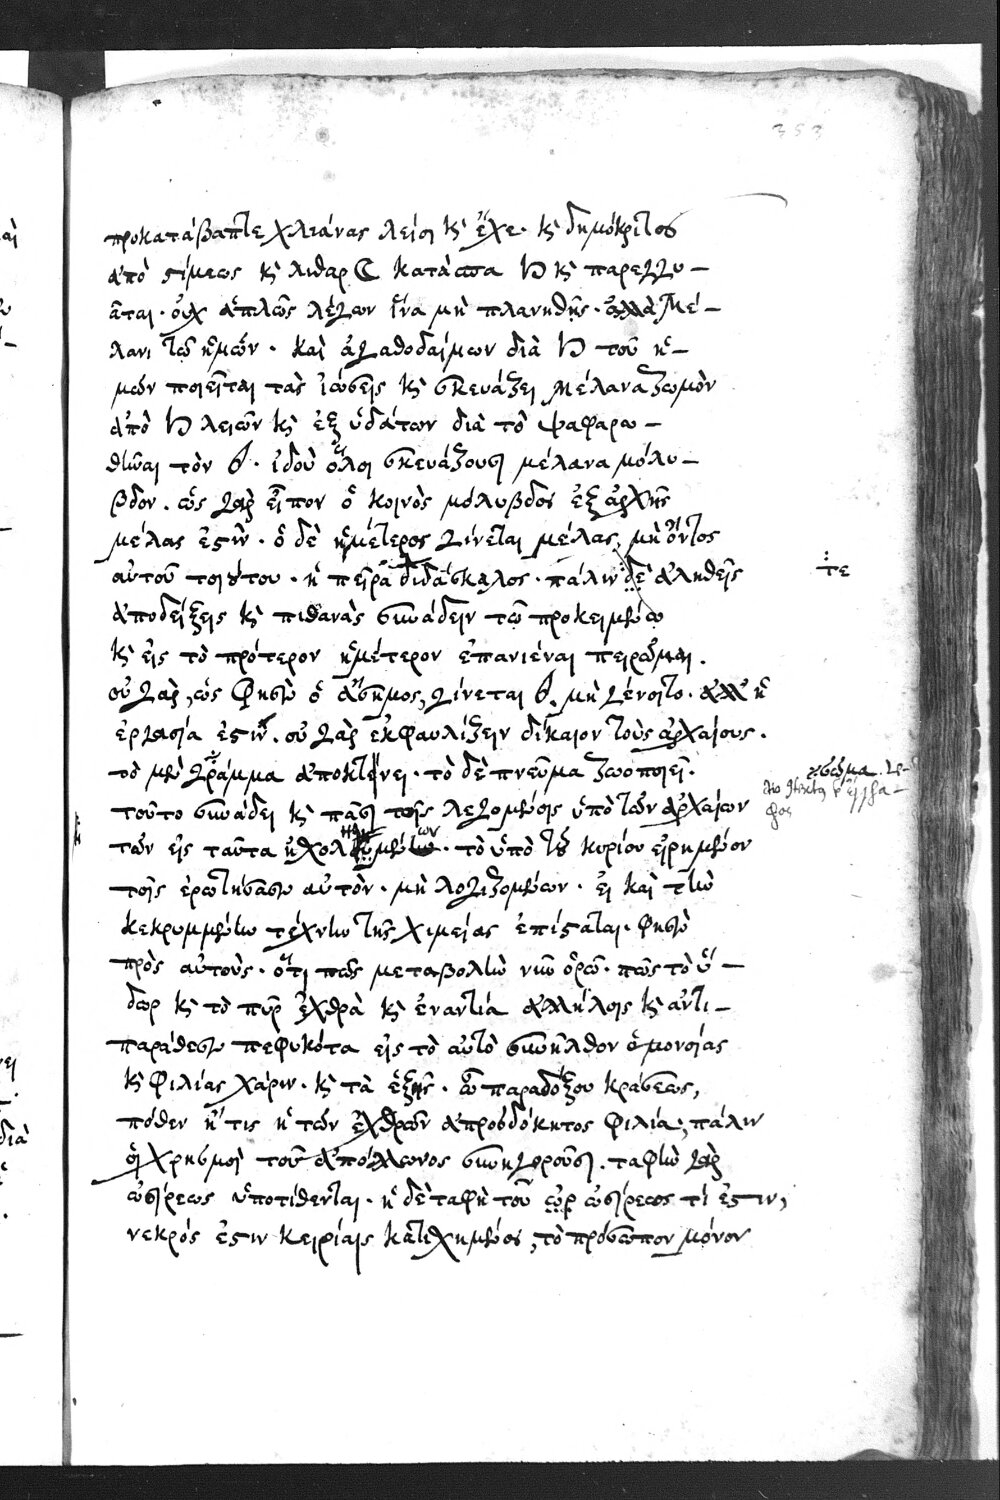 353
προκατάβαπτε χλιάνας λείοι κὲ ἔχε. κὲ δημόκριτος
ἀπὸ στίμεως κὲ λιθαρ κατάσπα κὲ παρεγγυ-
ᾶται. οὐχ ἁπλῶς λέγων ἵνα μὴ πλανηθῆς. ἀλλὰ Μέ-
λανι τῷ ἡμῶν. καὶ ἀγαθοδαίμων διὰ τοῦ ἡ-
μῶν ποιεῖται τὰς ἰώσεις κὲ σκευάζει μέλανα ζωμὸν
ἀπὸ λειῶν κὲ ἐξ ὑδάτων διὰ τὸ ψαφαρω-
θῆναι τὸν. ἰδοὺ ὅλοι σκευάζουσι μέλανα μόλυ-
βδον. ὡς γὰρ εἶπον ὁ κοινὸς μόλυβδος ἐξ ἀρχῆς
μέλας ἐστὶν. ὁ δὲ ἡμέτερος γίνεται μέλας, μὴ ὄντος
αὐτοῦ τοιούτου. ἡ πεῖρα διδάσκαλος. πάλιν δὲ ἀληθεῖς
τε
ἀποδείξεις κὲ πιθανὰς συνάδειν τῷ προκειμένῳ
κὲ εἰς τὸ πρότερον ἡμέτερον ἐπανιέναι πειρῶμαι.
οὐ γὰρ, ὡς φησὶν ὁ ἄσημος, γίνεται. μὴ γένοιτο. ἀλλ' ἡ
ἐργασία ἐστὶν. οὐ γὰρ ἐκφαυλίζειν δίκαιον τοὺς ἀρχαίους.
τὸ μὲν γράμμα ἀποκτένει. τὸ δὲ πνεῦμα ζωοποιεῖ.
τοῦτο συνάδει κὲ πᾶσι τοῖς λεγομένοις ὑπὸ τῶν ἀρχαίων
τῶν εἰς ταῦτα. τὸ ὑπὸ τοῦ κυρίου εἰρημένον
τοῖς ἐρωτήσασιν αὐτὸν. μὴ λογιζομένων. εἰ καὶ τὴν
κεκρυμμένην τέχνην τῆς χιμείας ἐπίσταται. φησὶν
πρὸς αὐτοὺς. ὅτι πῶς μεταβολὴν νῦν ὁρῶ. πῶς τὸ ὕ-
δωρ κὲ τὸ πῦρ ἐχθρὰ κὲ ἐναντία ἀλλήλοις κὲ ἀντι-
παράθεσιν πεφυκότα εἰς τὸ αὐτὸ συνῆλθον ὁμονοίας
κὲ φιλίας χάριν. κὲ τὰ ἑξῆς. ὢ παραδόξου κράσεως,
πόθεν ἥτις ἡ τῶν ἐχθρῶν ἀπροσδόκητος φιλία, πάλιν
οἱ χρησμοὶ τοῦ ἀπόλλωνος συνηγοροῦσι. ταφὴν γὰρ
ὠσίρεως ὑποτίθενται. ἡ δὲ ταφὴ τοῦ ὠσίρεως τί ἐστιν,
νεκρός ἐστιν κειρίαις, τὸ πρόσωπον μόνον